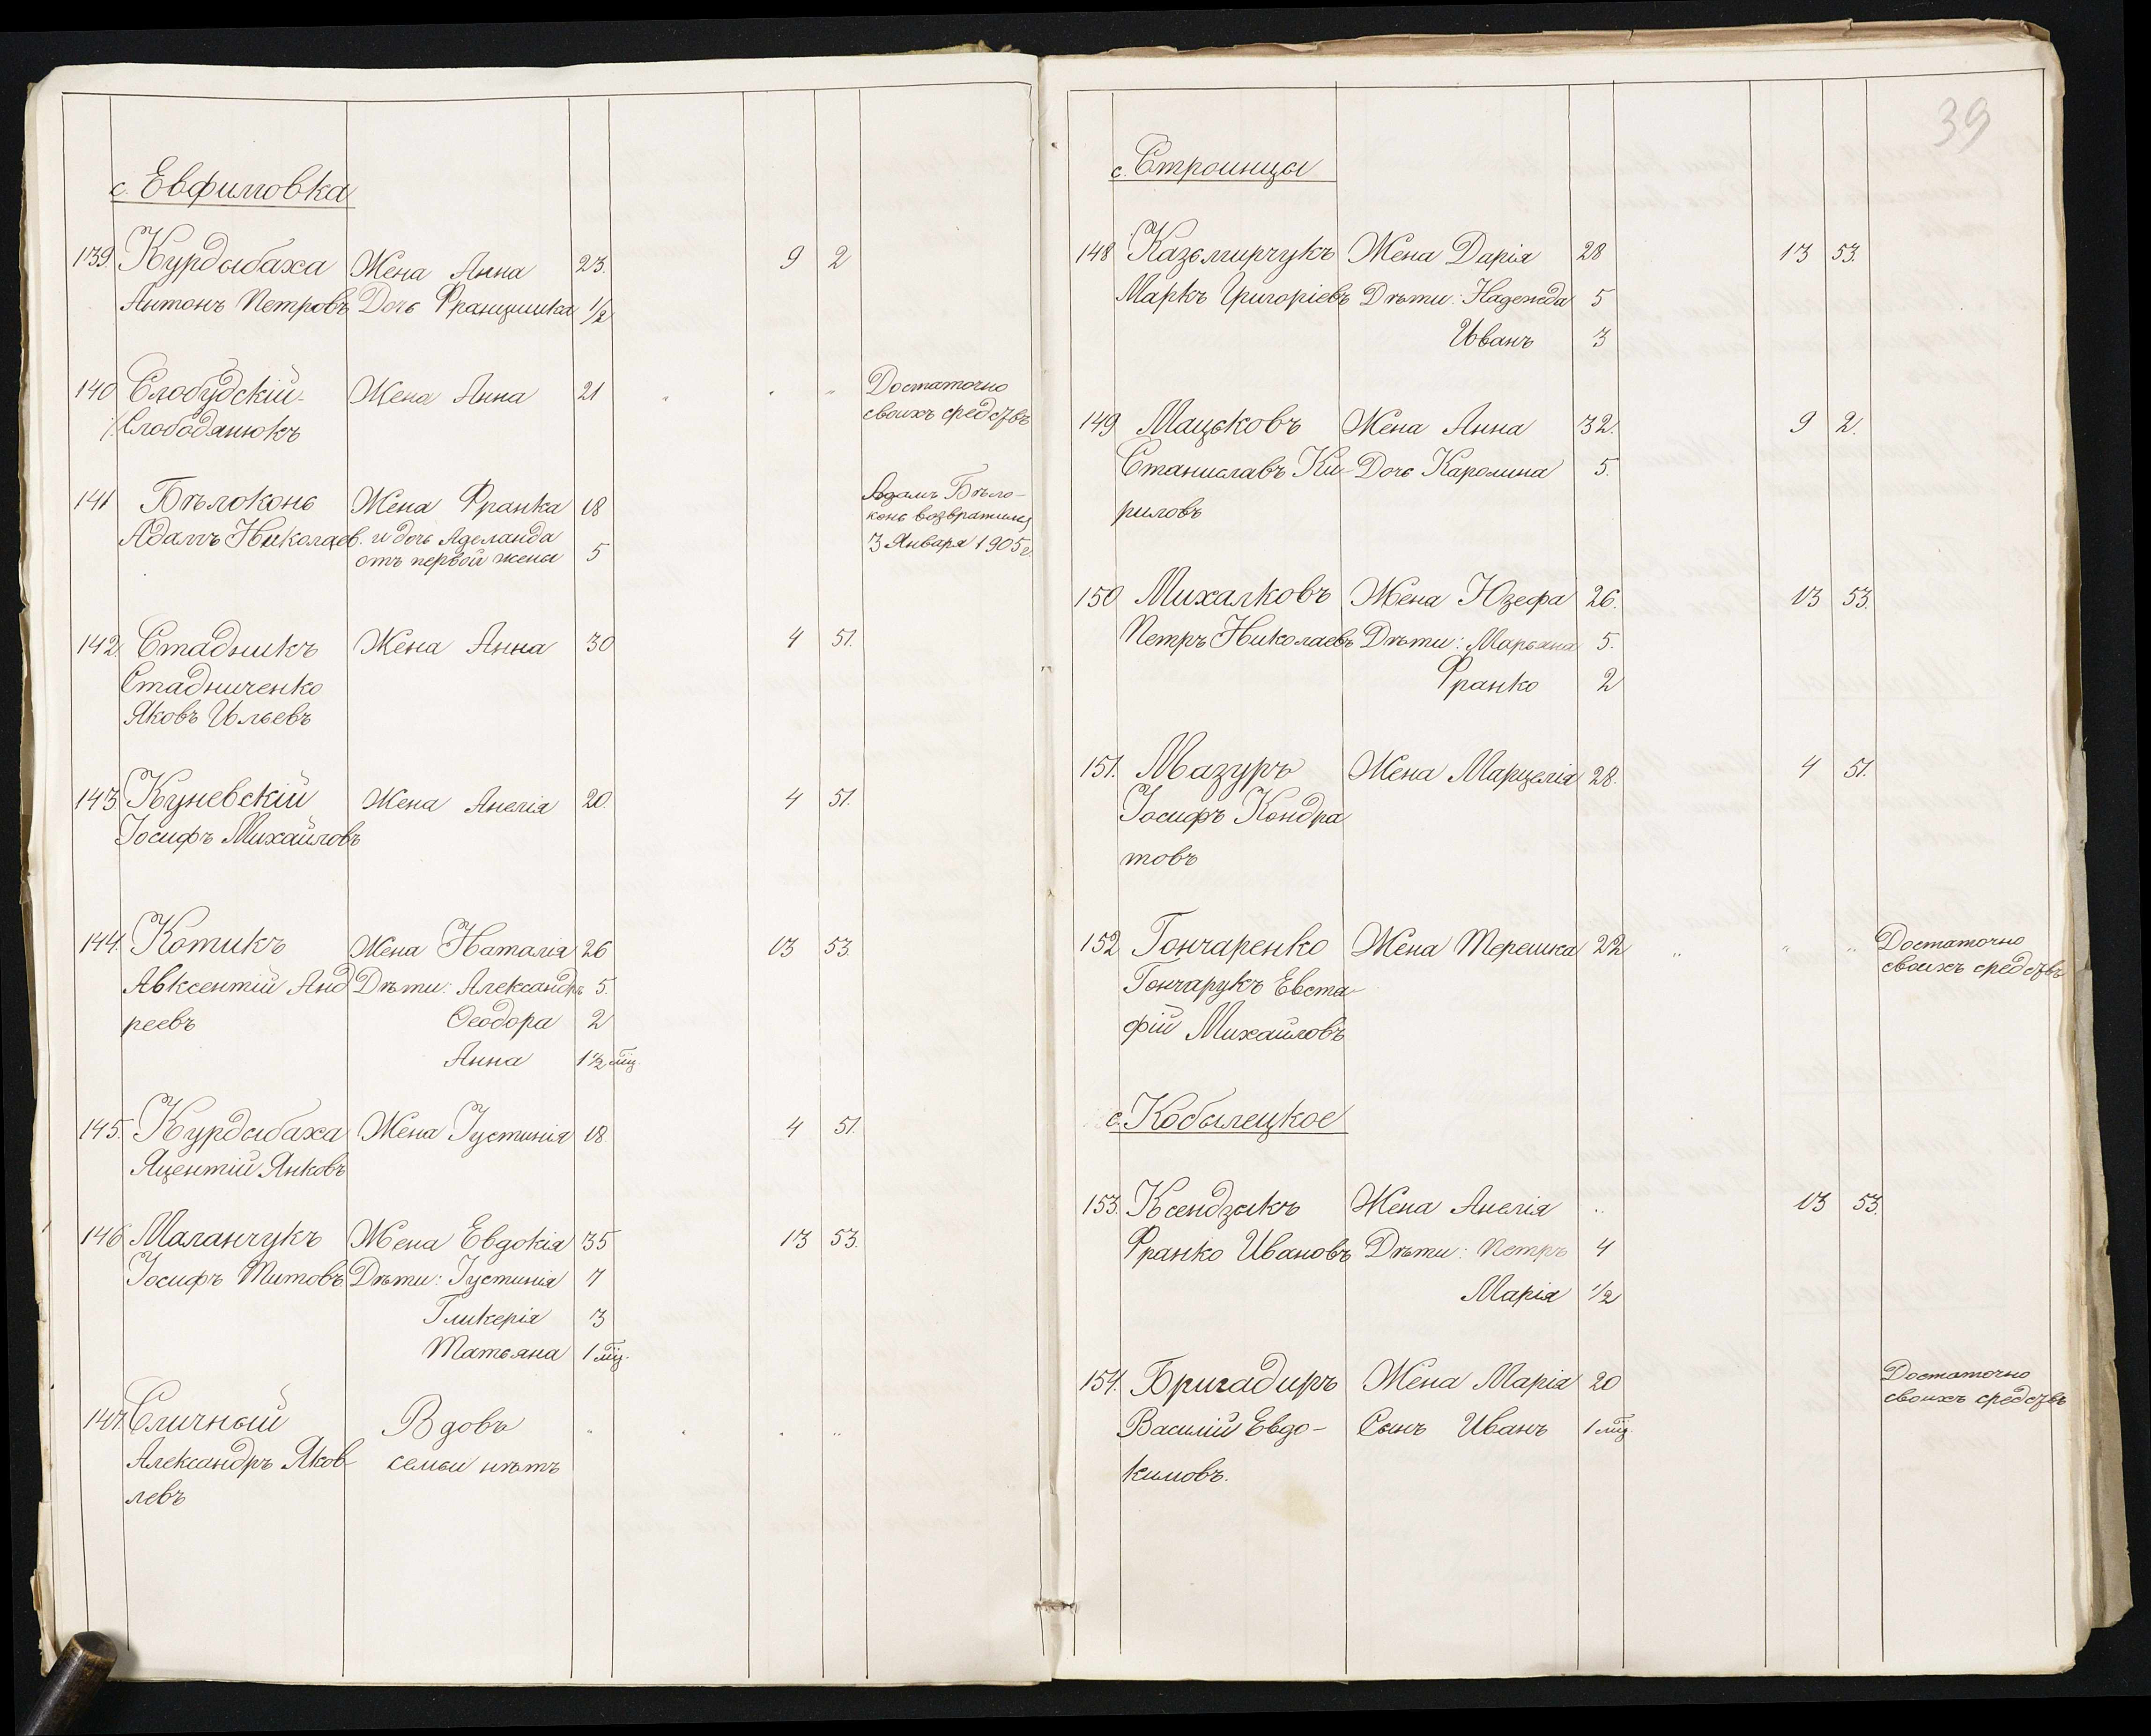 с. Евфимовка
139. Курдыбаха Жена Анна 23. 9 2
Антонъ Петровъ Дочь Францишка 1/2
140 Слободскій- Жена Анна 21 " " " Достаточно
Слободянюкъ своихъ средствъ
141 Бѣлоконь Жена Франка 18 Адамъ Бѣло-
Адамъ Николаев. и дочь Аделаида конь возвратился
отъ первой жены 5 3 Января 1905 г.
142. Стадникъ Жена Анна 30 4 51.
Стадниченко
Яковъ Ильевъ
143 Куневскій Жена Анелія 20. 4 51.
Іосифъ Михайловъ
144. Котикъ Жена Наталія 26 13 53.
Авксентій Анд Дѣти: Александръ 5.
реевъ Ѳеодора 2
Анна 1 1/2 мц
145. Курдыбаха Жена Іустинія 18. 4 51.
Яцентій Янковъ
146 Маланчукъ Жена Евдокія 35 13 53.
Іосифъ Титовъ Дѣти: Іустинія 7
Гликерія 3
Татьяна 1 мц.
147. Сличный Вдовъ " " " "
Александръ Яков семьи нѣтъ
левъ
39
с. Строинцы
148 Казьмирчукъ Жена Дарія 28 13 53.
Маркъ Григоріевъ Дѣти: Надежда 5
Иванъ 3
149 Мацьковъ Жена Анна 32. 9 2.
Станиславъ Ки- Дочь Каролина 5.
риловъ
150 Михалковъ Жена Юзефа 26. 13 53.
Петръ Николаевъ Дѣти: Марьяна 5.
Франко 2
151. Мазуръ Жена Марцелія 28. 4 51.
Іосифъ Кондра
товъ
152 Гончаренко Жена Терешка 22 " " " Достаточно
Гончарукъ Евста- своихъ средствъ
фій Михайловъ
с. Кобылецкое
153. Ксендзыкъ Жена Анелія .. 13 53.
Франко Ивановъ Дѣти: Петръ 4
Марія 1/2
154. Бригадиръ Жена Марія 20 Достаточно
Василій Евдо- Сынъ Иванъ 1 мц. своихъ средствъ
кимовъ.